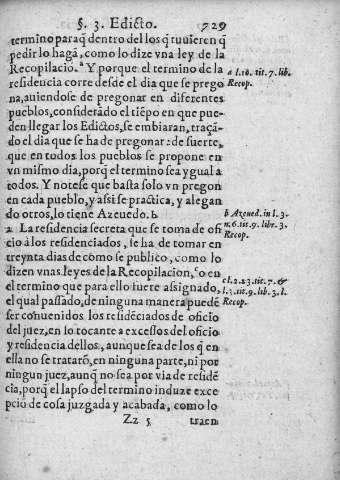 §. 3. Edicto. 729
termino paraq̃ dentro del los q̃ tuuieren q̃
pedir lo hagã, como lo dize vna ley de la
Recopilaciõ.ª Y porque el termino de la
residencia corre desde el dia que se prego
na, auiendose de pregonar en diferentes
pueblos, considerãdo el tiẽpo en que pue-
den llegar los Edictos, se embiaran, traçã-
do el dia que se ha de pregonar: de suerte,
que en todos los pueblos se propone en
vn mismo dia, porq̃ el termino sea ygual a
todos. Y notese que basta solo vn pregon
en cada pueblo, y asi se practica, y alegan
do otros, lo tiene Azeuedo. b
2 La residencia secreta que se toma de ofi
cio à los residenciados, se ha de tomar en
treynta dias de como se publico, como lo
dizen vnas leyes de la Recopilacion, c o en
el termino que para ello fuere asignado,
el qual passado, de ninguna manera puedẽ
ser conuenidos los residẽciados de oficio
del juez, en lo tocante a excessos del oficio
y residencia dellos, aunque sea de los q̃ en
ella no se tratarõ, en ninguna parte, ni por
ningun juez, aunq̃ no sea por via de residẽ
cia, porq̃ el lapso del termino induze exce
pciõ de cosa juzgada y acabada, como lo
Zz 5 traen
a l.18. tit. 7. lib.
Recop.
b Azeued. in l. 3.
n. 6. tit. 9. lib. 3.
Recop.
c l. 2. 23. tit. 7. &
l. 3. tit. 9. lib. 3. l.
Recop.